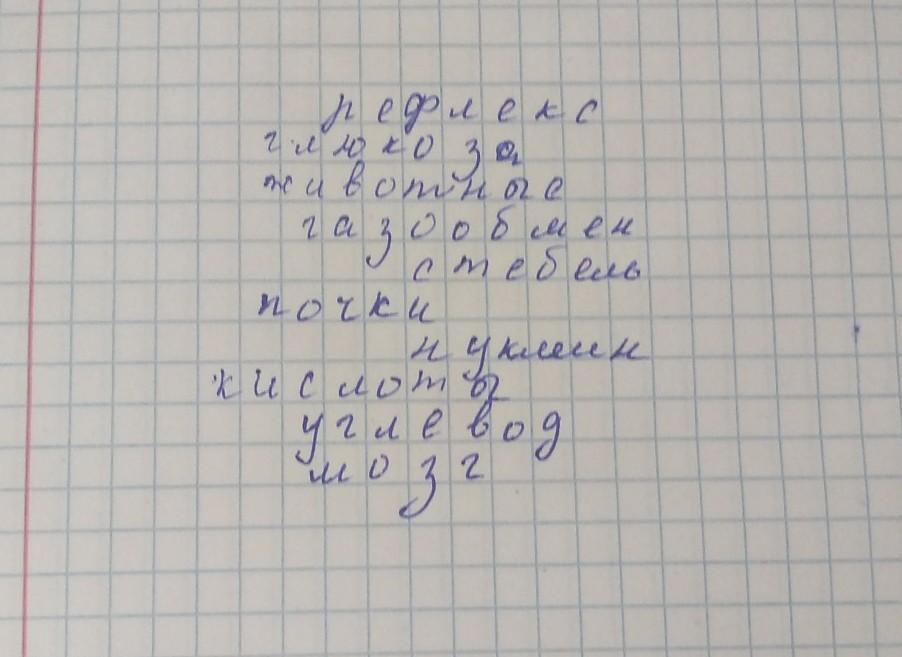 рефлекс
глюкоза
животные
газообмен
стебель
почки
нуклеин
кислоты
углевод
мозг